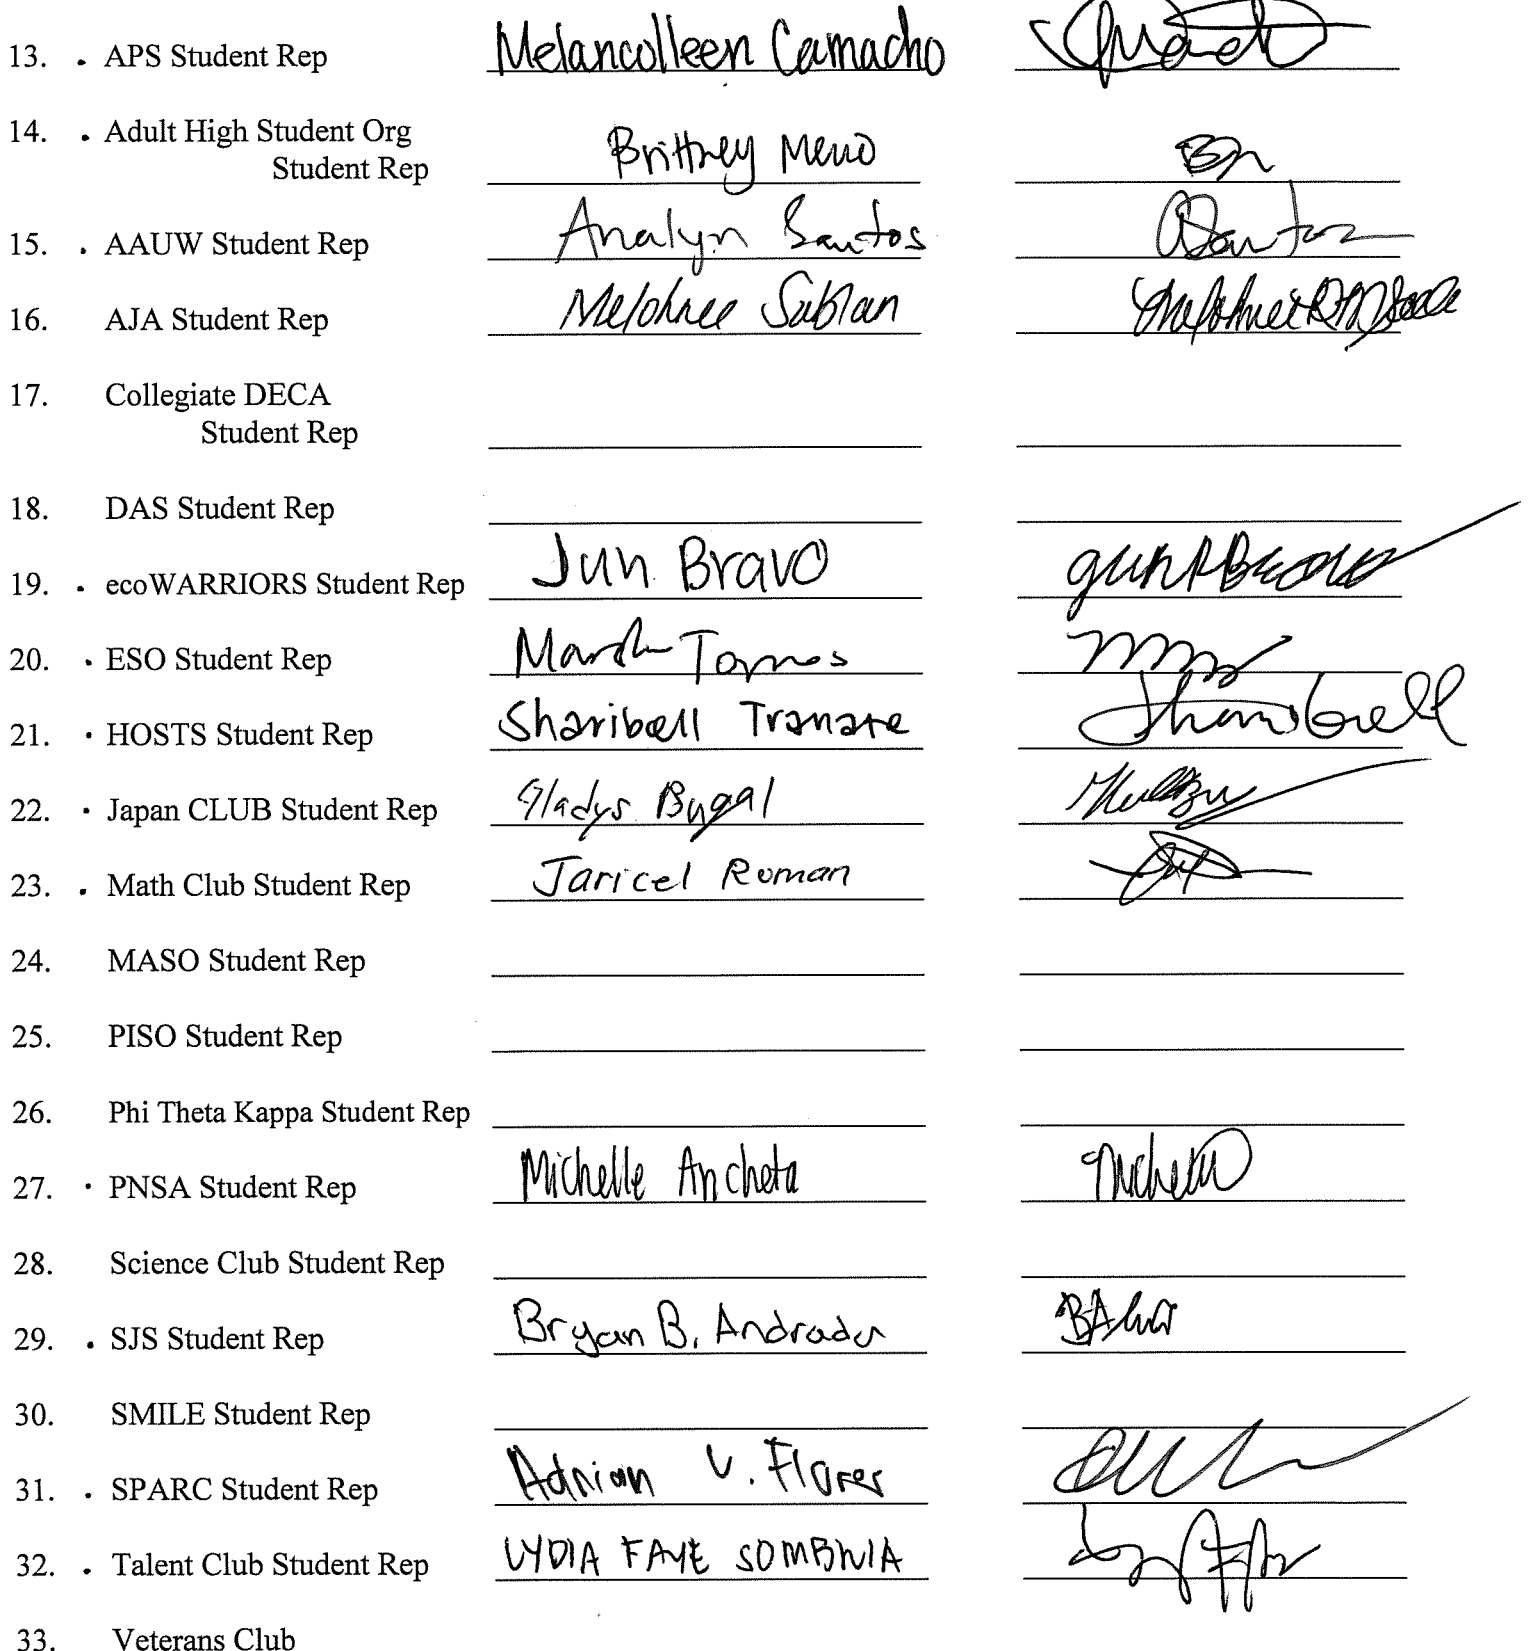 13. • APS Student Rep Melancolleen Camacho
14. • Adult High Student Org
Student Rep Brittney Meno
15. • AAUW Student Rep Analyn Santos
16. AJA Student Rep Melohnee Sablan
17. Collegiate DECA
Student Rep
18. DAS Student Rep
19. • ecoWARRIORS Student Rep Jun Bravo
20. • ESO Student Rep
21. • HOSTS Student Rep Sharibell Tranate
22. • Japan CLUB Student Rep Gladys Bugal
23. • Math Club Student Rep Jaricel Roman
24. MASO Student Rep
25. PISO Student Rep
26. Phi Theta Kappa Student Rep
27. • PNSA Student Rep Michelle Ancheta
28. Science Club Student Rep
29. • SJS Student Rep Bryan B. Andrade
30. SMILE Student Rep
31. • SPARC Student Rep Adrian V. Flores
32. • Talent Club Student Rep LYDIA FAYE
33. Veterans Club